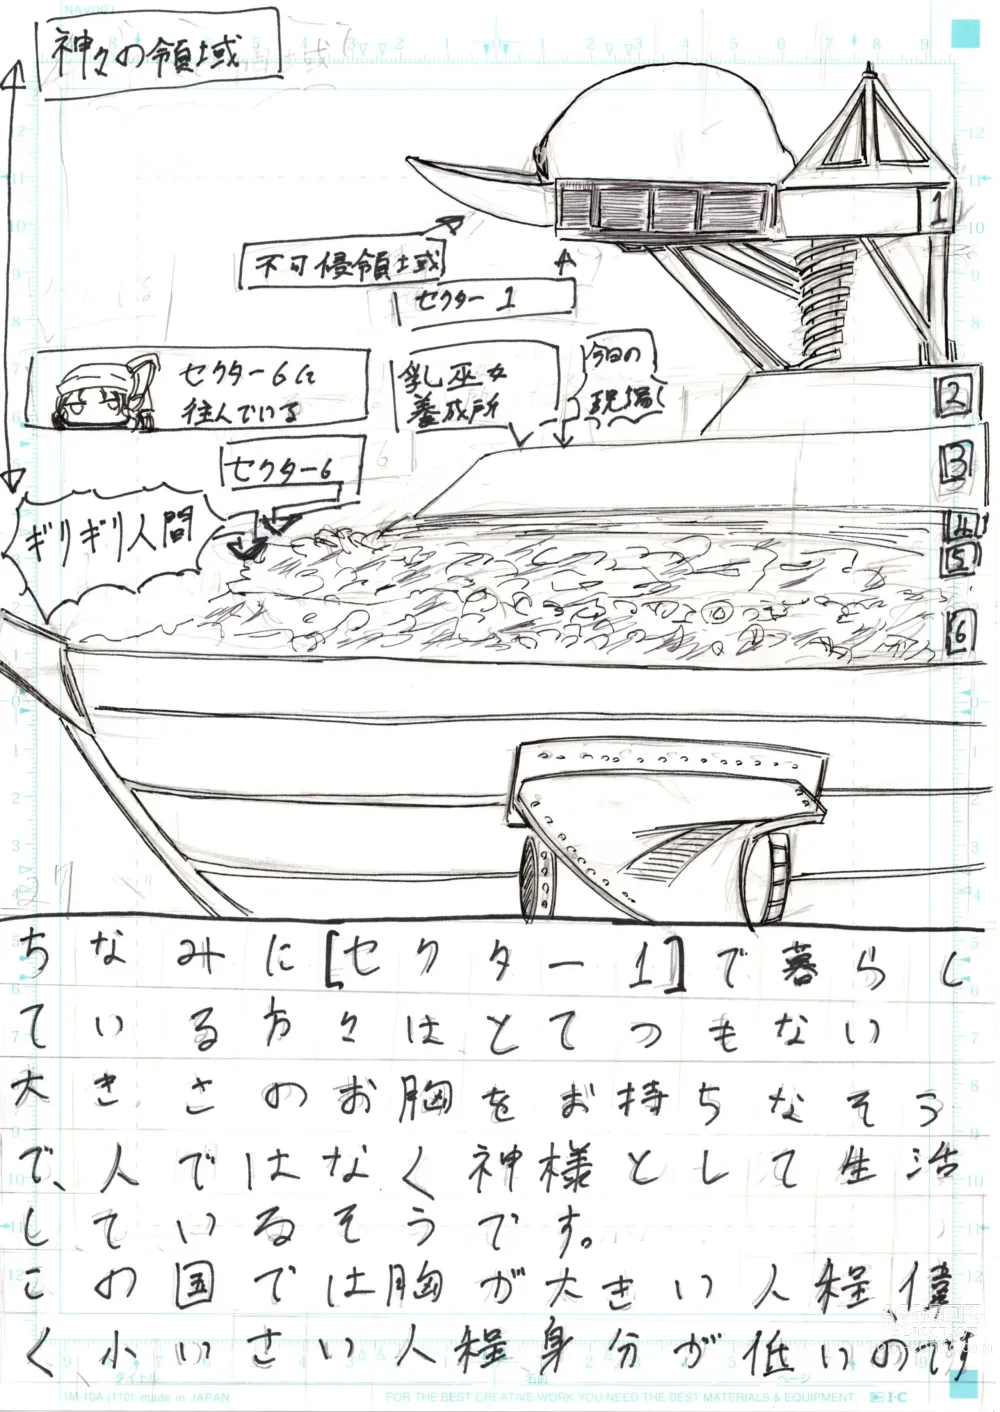 神々の領域
1
不可侵領域
セクター1
セクター6に
住んでいる
乳巫女
養成所
今日の
現場
2
3
4
5
6
セクター6
ギリギリ人間
ちなみに[セクター1]で暮らし
ている方々はとてつもない
大きさのお胸をお持ちなそう
で、人ではなく神様として生活
しているそうです。
この国では胸が大きい人程偉
く小いさい人程身分が低いのです
タイトル
名前
ページ
IM-10A (110) made in JAPAN
FOR THE BEST CREATIVE WORK YOU NEED THE BEST MATERIALS & EQUIPMENT
I·C